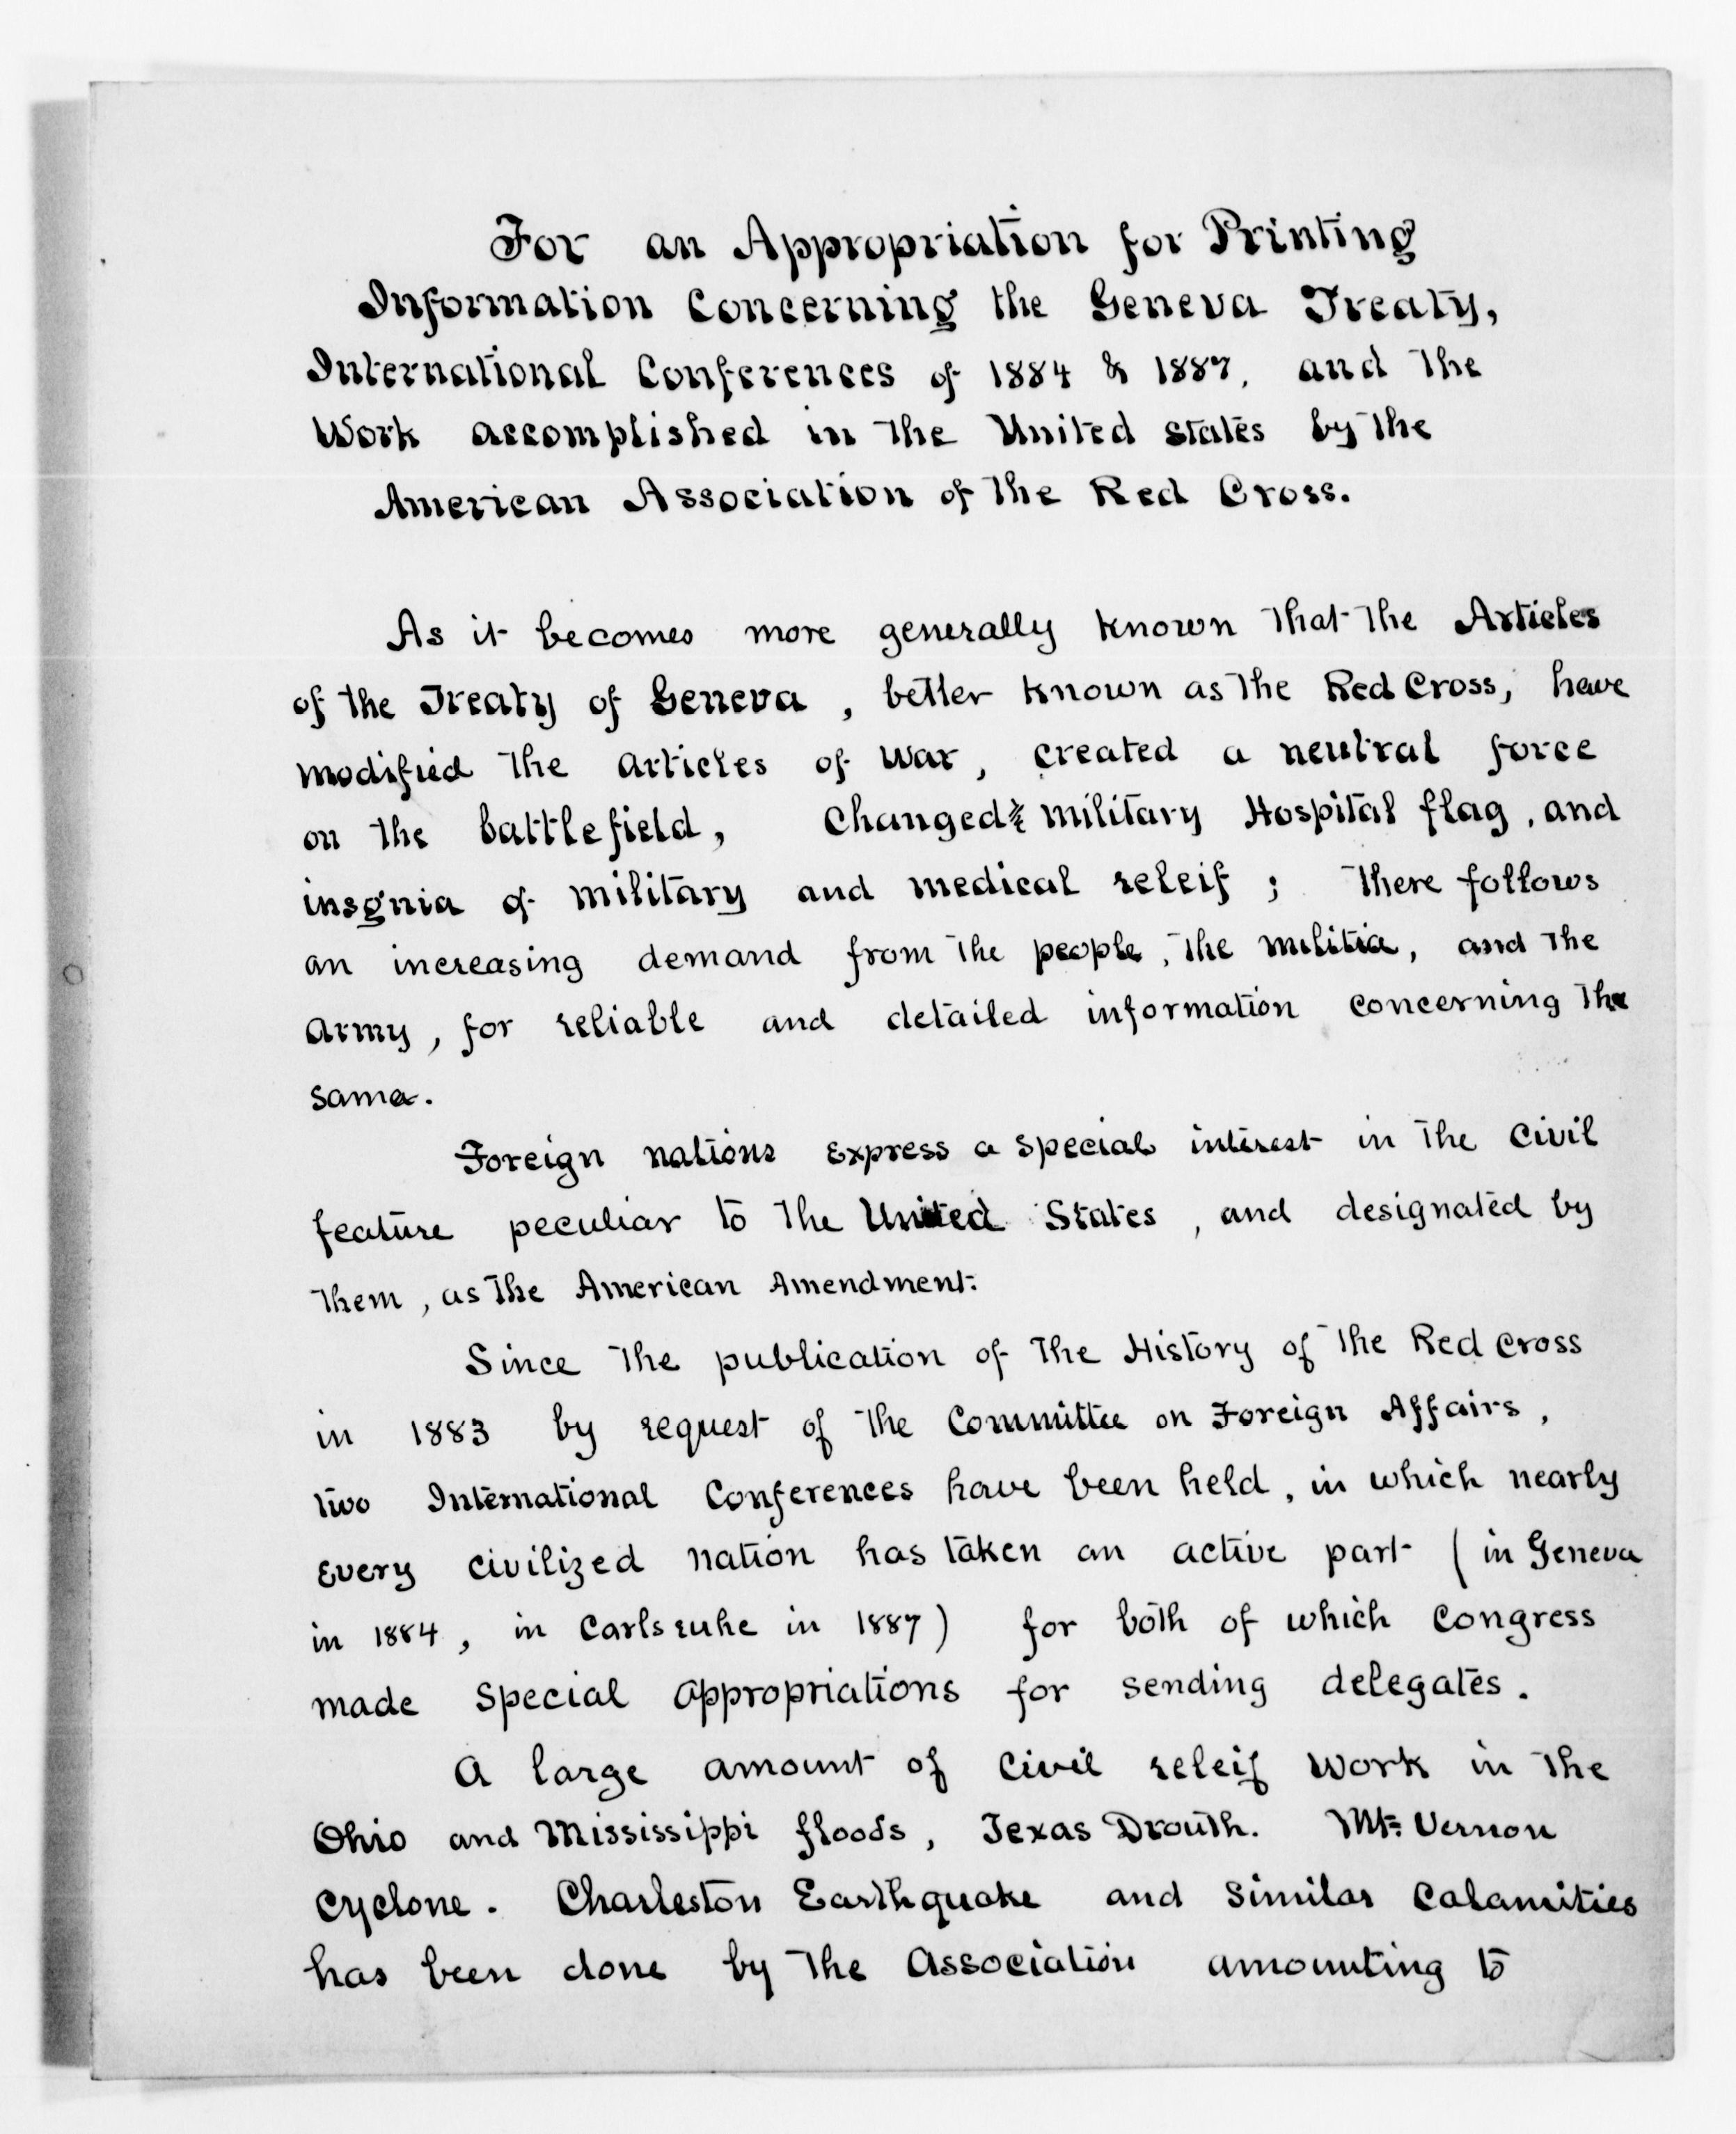 For an Appropriation for Printing
Information Concerning the Geneva Treaty,
International Conferences of 1884 & 1887, and the
Work accomplished in the United States by the
American Association of the Red Cross.
As it becomes more generally known that the Articles
of the Treaty of Geneva, better known as the Red Cross, have
modified the articles of war, created a neutral force
on the battlefield, Changed the military Hospital flag, and
insgnia of military and medical releif; there follows
an increasing demand from the people, the militia, and the
army, for reliable and detailed information concerning the
same.
Foreign nations express a special interest in the civil
feature peculiar to the United States, and designated by
them, as the American Amendment.
Since the publication of the History of the Red Cross
in 1883 by request of the Committee on Foreign Affairs,
two International Conferences have been held, in which nearly
every civilized nation has taken an active part (in Geneva
in 1884, in Carlsruhe in 1887) for both of which Congress
made special appropriations for sending delegates.
A large amount of civil releif work in the
Ohio and Mississippi floods, Texas Drouth. Mt. Vernon
Cyclone. Charleston Earthquake and similar calamities
has been done by the Association amounting to